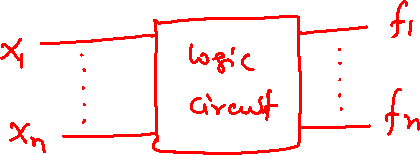 x₁
xₙ
logic
circuit
f₁
fₙ